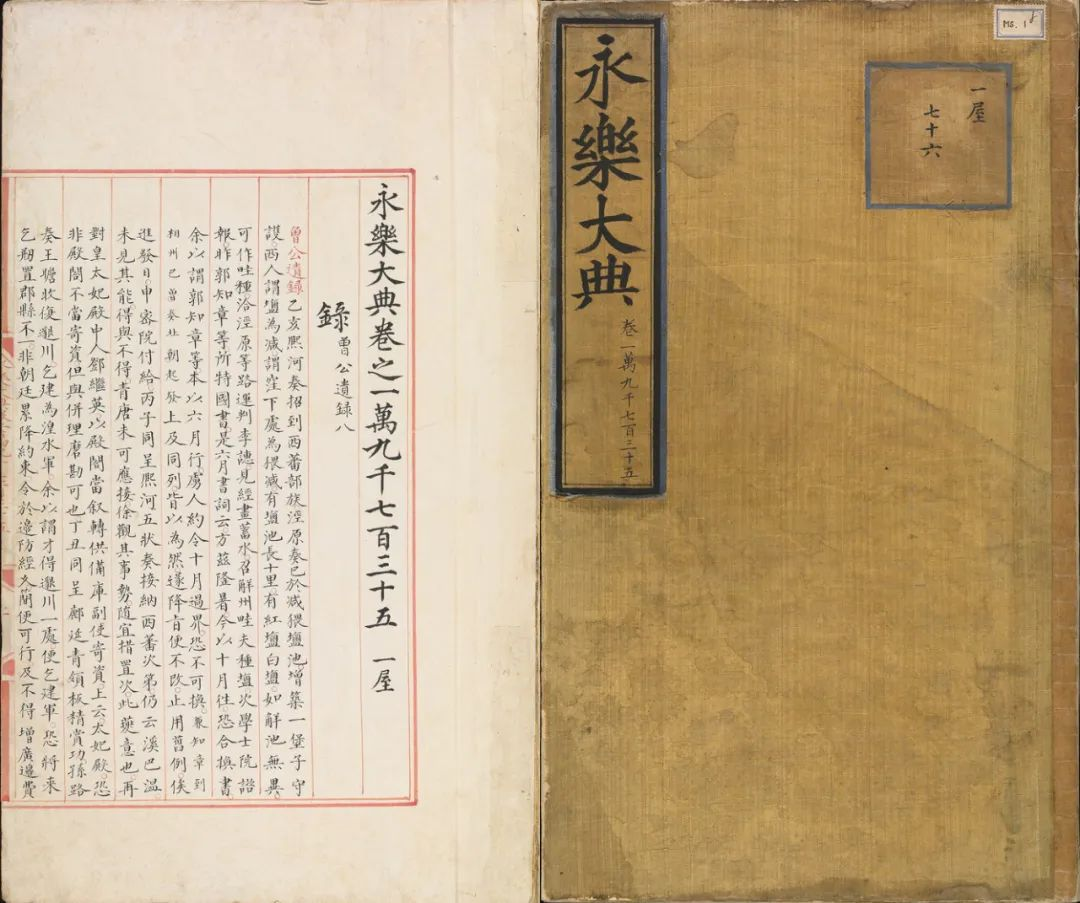 永樂大典
卷一萬九千七百三十五
一屋
七十六
MS. 1
永樂大典卷之一萬九千七百三十五 一屋
錄 曾公遺錄八
曾公遺錄乙亥熙河奏招到西蕃部族涇原奏已於減猥鹽池增築一堡子守
護。西人謂鹽為減謂窪下處為猥減有鹽池長十里有紅鹽白鹽。如解池無異
可作畦種洽涇原等路運判李譓見經畫蓄水召解州畦夫種鹽次學士院諮
報。昨郭知章等所持國書是六月書詞云。方茲隆暑今以十月往。恐合換書
余以謂郭知章等本以六月行虜人約令十月過界。恐不可換。兼知章到
相州已曾奏北朝起發上及同列皆以為然。遂降旨便不改。止用舊例。俟
進發日。申密院付給丙子同呈熙河五狀奏接納西蕃次第。仍云溪巴溫
未見其能得與不得青唐未可應接。徐觀其事勢隨宜措置次。此蕤意也再
對皇太妃殿中人鄧繼英以殿閣當叙轉供備庫副使寄資。上云太妃殿。恐
非殿閣不當寄資。但與併理磨勘可也丁丑同呈鄜延青領板精賞功。孫路
奏王贍收復邈川乞建為湟水軍余以謂才得邈川一處便乞建軍。恐將來
乞剏置郡縣不一。非朝廷累降約束令於邊防經久簡便可行及不得增廣邊費